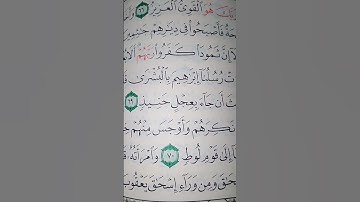 رَبَّكَ هُوَ ٱلْقَوِىُّ ٱلْعَزِيزُ ٦٦
حَةُ فَأَصْبَحُوا۟ فِى دِيَٰرِهِمْ جَٰثِمِينَ
أَلَآ إِنَّ ثَمُودَا۟ كَفَرُوا۟ رَبَّهُمْ أَلَا
تْ رُسُلُنَآ إِبْرَٰهِيمَ بِٱلْبُشْرَىٰ
ثَ أَن جَآءَ بِعِجْلٍ حَنِيذٍ ٦٩
نَكِرَهُمْ وَأَوْجَسَ مِنْهُمْ
نَآ إِلَىٰ قَوْمِ لُوطٍ ٧٠ وَٱمْرَأَتُهُۥ
حَٰقَ وَمِن وَرَآءِ إِسْحَٰقَ يَعْقُوبَ